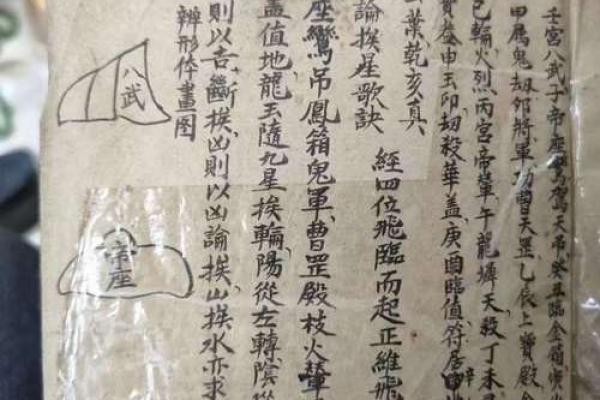 壬宮八武子帝座鸞駕天吊癸丑臨金箱寅
甲屬鬼刼卯將軍刼曹天罡乙辰上寶殿
巳輪火烈丙宮帝輦午龍墀天殺丁未
貨叁申玉印刼殺華盖庚酉臨值符居
葉乾亥真
經四位飛臨而起正維飛
論挨星歌訣
座鸞吊鳳箱鬼軍曹罡殿枝火輦
盖值地龍玉隨九星挨輪陽從左轉陰從
則以吉斷挨凶則以凶論挨山挨水亦求
辨形体畫图
八武
帝座